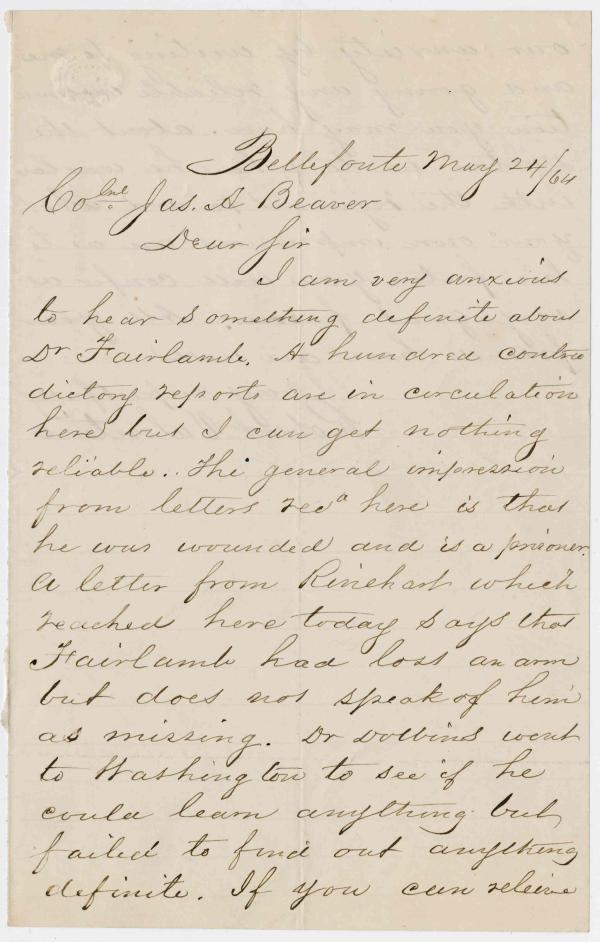 Bellefonte May 24/64
Colnl. Jas. A Beaver
Dear Sir
I am very anxious
to hear something definite about
Dr Fairlamb. A hundred contra
dictory reports are in circulation
here but I can get nothing
reliable.. The general impression
from letters recd here is that
he was wounded and is a prisoner.
A letter from Rinehart which
reached here today says that
Fairlamb had lost an arm
but does not speak of him
as missing. Dr Dobbins went
to Washington to see if he
could learn anything but
failed to find out anything
definite. If you can releive